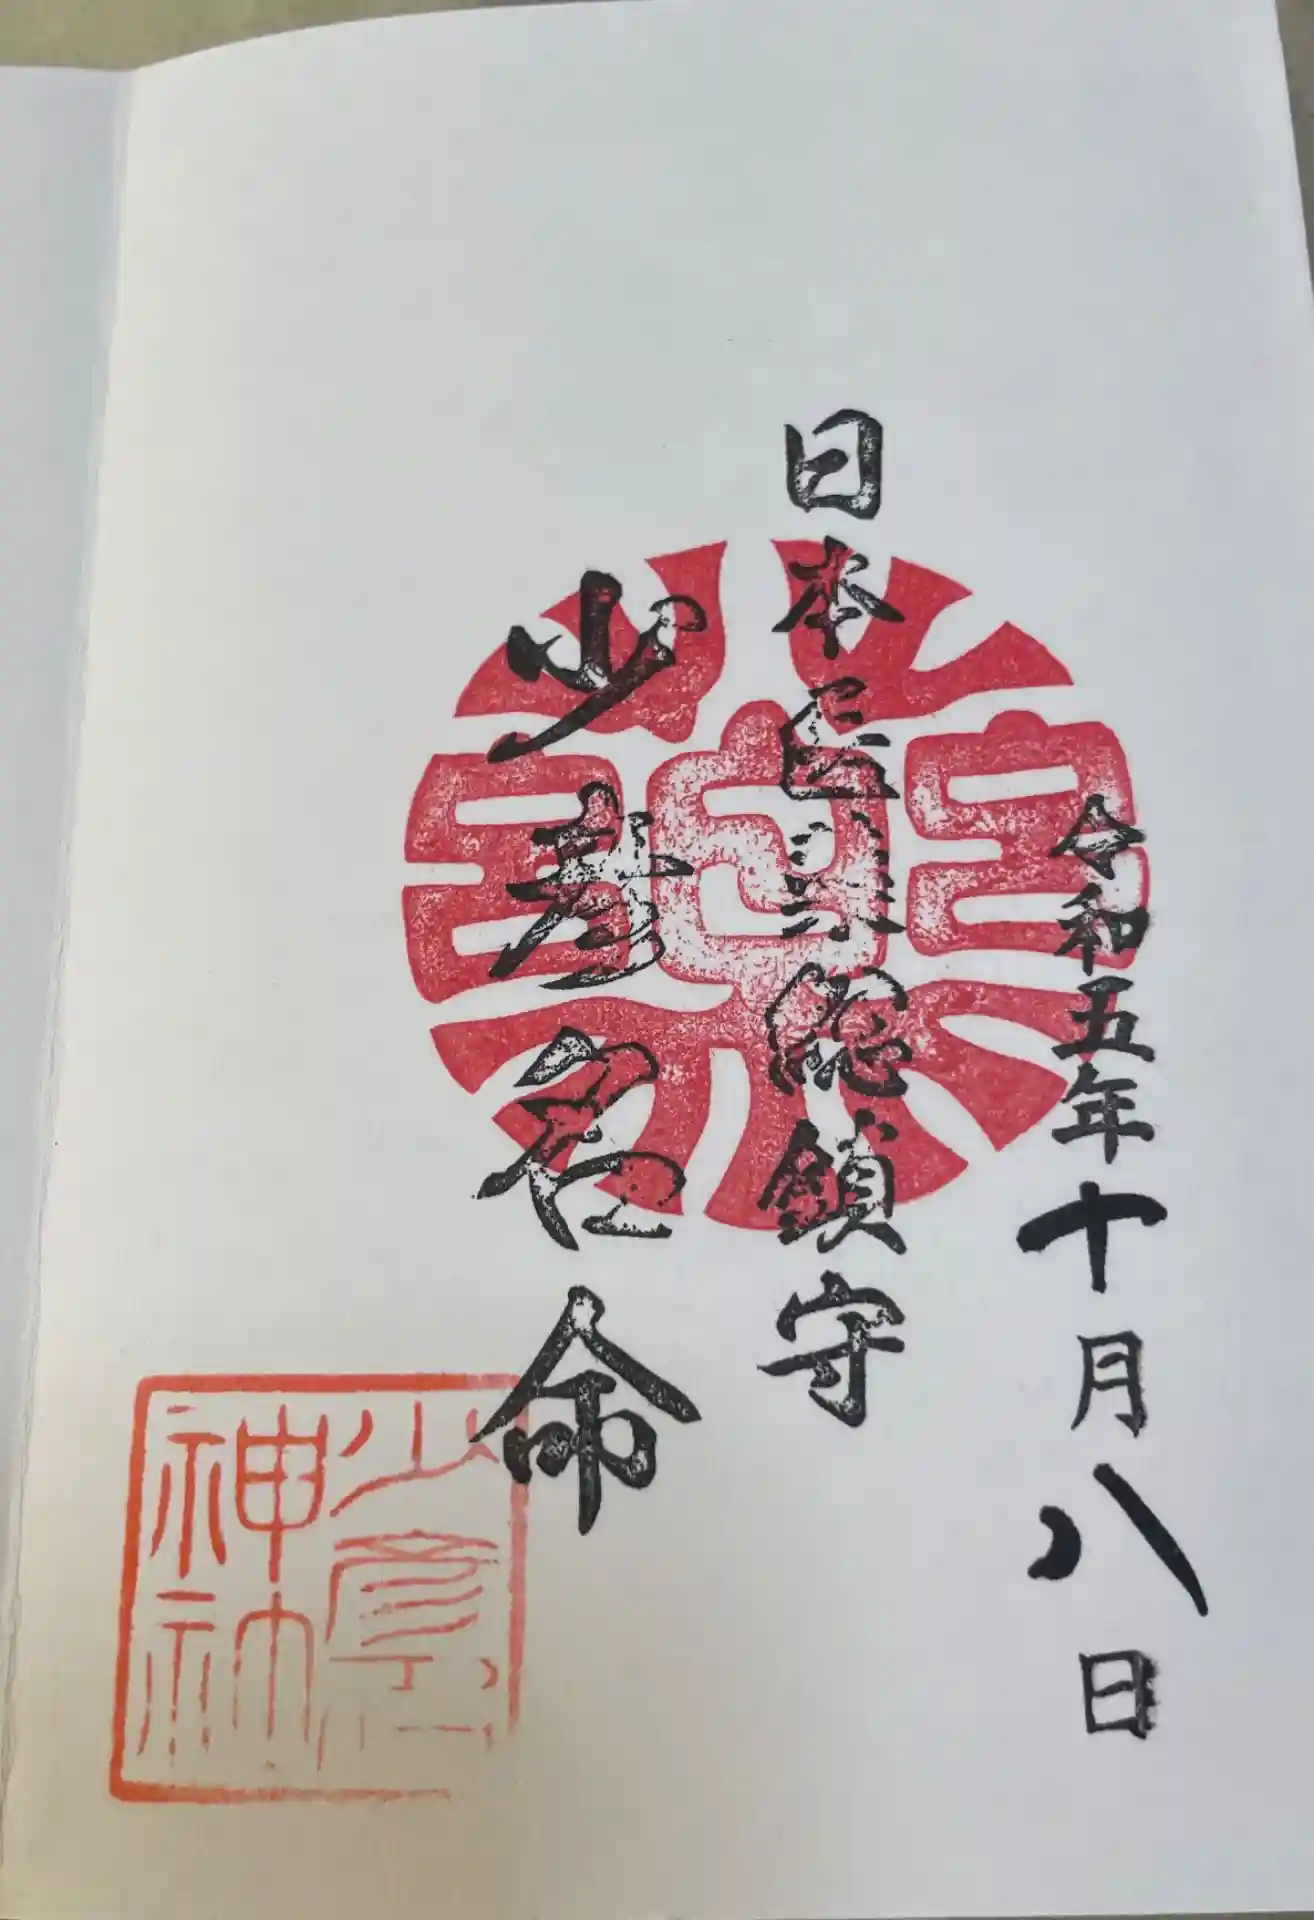 令和五年十月八日
日本医薬総鎮守
少彦名命
少彦
神社